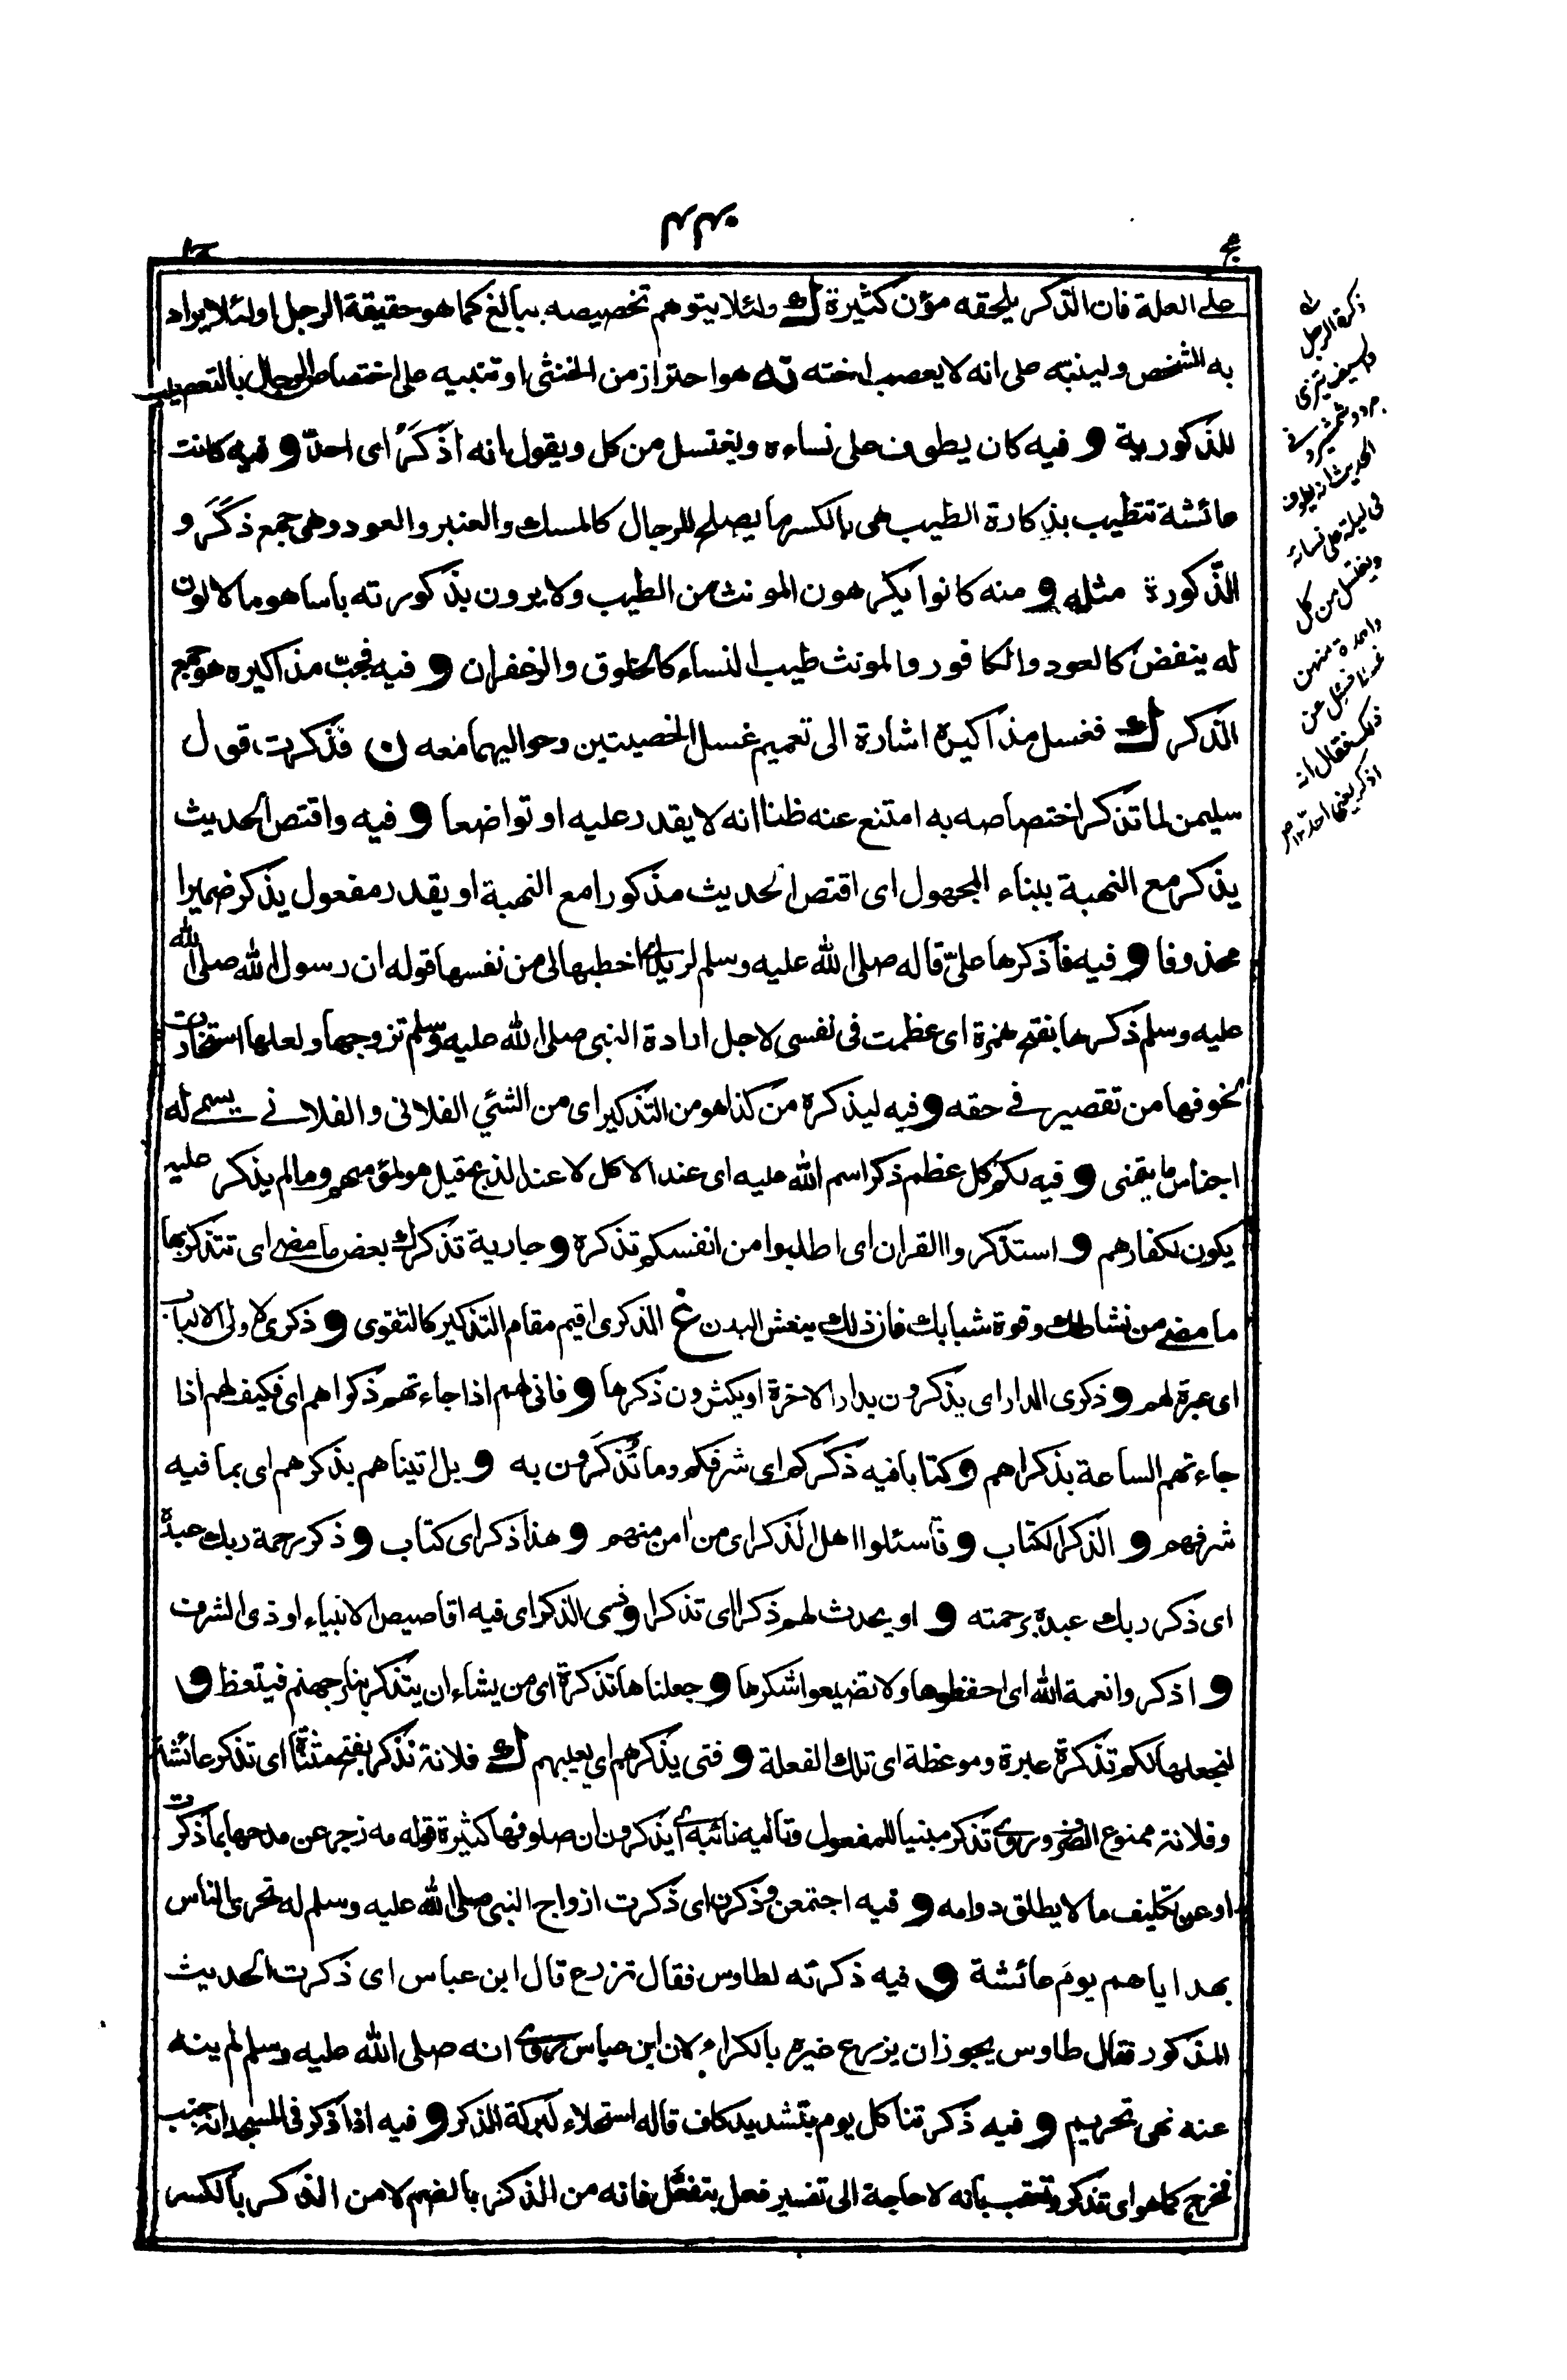 على العلة فان الذكر يلحقه مؤن كثيرة ك ولئلا يتوهم تخصيصه ببالغ كما هو حقيقة الرجل اولئلا يراد
به الشخص ولينبّه على انه لا يعصب اخته ته هو احتراز من الخنثى او تنبيه على اختصاص الرجال بالتعصيب
للذكورية و فيه كان يطوف على نساءه ويغتسل من كل ويقول انه اذكر اى احدّ و فيه كانت
عائشة تتطيب بذكارة الطيب هى بالكسر ما يصلح للرجال كالمسك والعنبر والعود وهى جمع ذكر و
الذّكورة مثله و منه كانوا يكرهون المونث من الطيب ولا يرون بذكورته باسا هو ما لا لون
له ينفض كالعود والكافور والمونث طيب النساء كالخلوق والزعفران و فيه فجبّ مذاكيره هو جمع
الذكر ك فغسل مذاكيره اشارة الى تعميم غسل الخصيتين وحواليهما معه ن فذكرت قول
سليمن لما تذكر اختصاصه به امتنع عنه ظنا انه لا يقدر عليه او تواضعا و فيه واقتص الحديث
يذكر مع النهبة ببناء المجهول اى اقتص الحديث مذكورا مع النهبة او يقدر مفعول يذكر ضميرا
محذوفا و فيه فاذكرها علىّ قاله صلى الله عليه وسلم لزيد اى اخطبها لى من نفسها قوله ان رسول الله صلى الله
عليه وسلم ذكرها بفتح همزة اى عظمت فى نفسى لاجل ارادة النبى صلى الله عليه وسلم تزوجها ولعلها استخارت
لخوفها من تقصير فى حقه و فيه ليذكره من كذا هو من التذكير اى من الشئ الفلانى والفلانے يسمے له
اجناس ما يتمنى و فيه لكم كل عظم ذكر اسم الله عليه اى عند الاكل لا عند الذبح قيل هو لمؤمنهم وما لم يذكر عليه
يكون لكفارهم و استذكروا القران اى اطلبوا من انفسكم تذكره و جارية تذكرك بعض ما مضے اى تتذكر بها
ما مضے من نشاطك وقوة شبابك فان ذلك ينعش البدن غ الذكرى اقيم مقام التذكير كالتقوى و ذكرى لاولى الالباب
اى عبرة لهم و ذكرى الدار اى يذكرون بدار الاخرة او يكثرون ذكرها و فانى لهم اذا جاءتهم ذكراهم اى فكيف لهم اذا
جاءتهم الساعة بذكراهم و كتابا فيه ذكركم اى شرفكم وما تُذكَرون به و بل اتيناهم بذكرهم اى بما فيه
شرفهم و الذكر الكتاب و فاسئلوا اهل الذكر اى من امن منهم و هذا ذكر اى كتاب و ذكر رحمة ربك عبدهٗ
اى ذكر ربك عبده برحمته و او يحدث لهم ذكرا اى تذكرا و نسى الذكر اى فيه اقاصيص الانبياء او ذى الشرف
و اذكروا نعمة الله اى احفظوها ولا تضيعوا شكرها و جعلناها تذكرة اى من يشاء ان يتذكر بنار جهنم فيتعظ و
لنجعلها لكم تذكرة عبرة وموعظة اى تلك الفعلة و فتى يذكرهم اى يعيبهم ك فلانة تذكر بفتح مثناة اى تذكر عائشة
وفلانة ممنوع الصرف وروى تذكر مبنيا للمفعول وتاليه نائبه اى يذكرون ان صلوتها كثيرة قوله مه زجر عن مدحها بما ذكرت
او عن تكليف ما لا يطلق دوامه و فيه اجتمعن وذكرن اى ذكرت ازواج النبى صلى الله عليه وسلم له تحرى الناس
بهداياهم يوم عائشة و فيه ذكرته لطاوس فقال تزرع قال ابن عباس اى ذكرت الحديث
المذكور فقال طاوس يجوز ان يزرع غيره بالكراء لان ابن عباس روى انه صلى الله عليه وسلم لم ينه
عنه نهى تحريم و فيه ذكرتنا كل يوم بتشديد كاف قاله استحلاء لبركة الذكر و فيه اذا ذكر فى المسجد انه جنب
فخرج كما هو اى تذكر وتعقب بانه لا حاجة الى تفسير فعل بتفعّل فانه من الذكر بالضم لا من الذكر بالكسر
ذكرة الرجل
والسيف تيزى
مرد وشمشير وفے
الحديث انه يطوف
فى ليلة على نسائه
ويغتسل من كل
واحدة منهن
غسلا فسئل عن
ذلك فقال انه
اذكر يعنى احد ١٢ صر